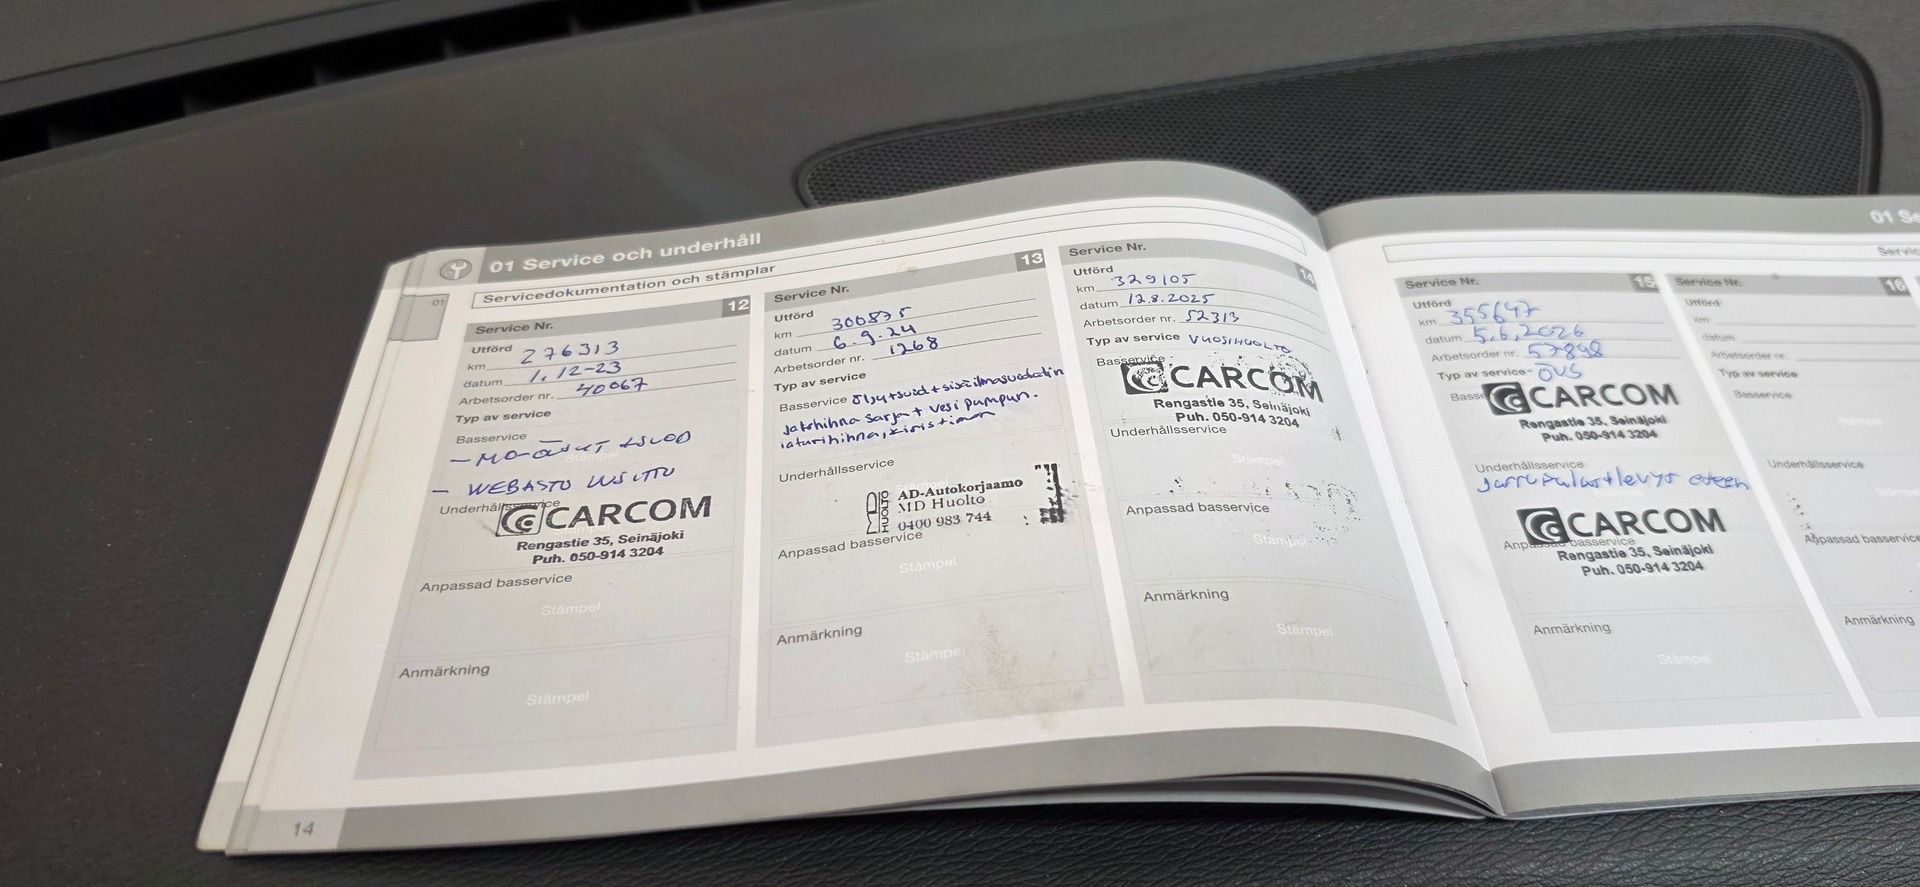 01 Service och underhåll
Servicedokumentation och stämplar
01
Service Nr. 12
Utförd
km 276313
datum 1.12-23
Arbetsorder nr. 40067
Typ av service
Basservice
- WEBASTO
Underhållsservice
CARCOM
Rengastie 35, Seinäjoki
Puh. 050-914 3204
Anpassad basservice
Stämpel
Anmärkning
Stämpel
14
Service Nr. 13
Utförd
km 300875
datum 6.9.24
Arbetsorder nr. 1268
Typ av service
Basservice Öljytsuod + sisäilmasuodatin
jakohihna sarja + vesipumpun.
laturihihna, kiristimen
Underhållsservice
AD-Autokorjaamo
MD Huolto
0400 983 744
HUOLTO
Anpassad basservice
Stämpel
Anmärkning
Stämpel
Service Nr. 14
Utförd
km 329105
datum 12.8.2025
Arbetsorder nr. 52313
Typ av service VUOSIHUOLTO
Basservice
CARCOM
Rengastie 35, Seinäjoki
Puh. 050-914 3204
Underhållsservice
Stämpel
Anpassad basservice
Stämpel
Anmärkning
Stämpel
01 Se
Servic
Service Nr. 15
Utförd
km 355647
datum 5.6.2026
Arbetsorder nr. 57898
Typ av service
Basse
CARCOM
Rengastie 35, Seinäjoki
Puh. 050-914 3204
Underhållsservice
Jarrupalat + levyt eteen
CARCOM
Anpassad basservice
Rengastie 35, Seinäjoki
Puh. 050-914 3204
Anmärkning
Stämpel
Service Nr. 16
Utförd
km
datum
Arbetsorder nr.
Typ av service
Basservice
Underhållsservice
Anpassad basservice
Anmärkning